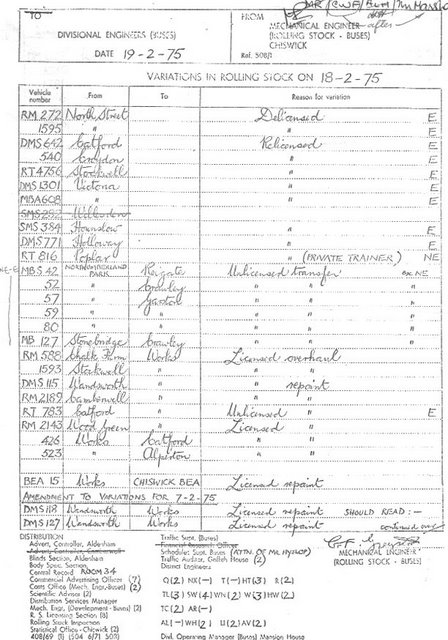 TO
FROM
MECHANICAL ENGINEER
DIVISIONAL ENGINEERS (BUSES)
(ROLLING STOCK - BUSES)
CHISWICK
DATE 19-2-75
Ref. 508/1
VARIATIONS IN ROLLING STOCK ON 18-2-75
Vehicle number From To Reason for variation
RM 272 North Street Delicensed E
1595 " " E
DMS 642 Catford Relicensed E
540 Croydon " E
RT 4756 Stockwell " E
DMS 1301 Victoria " E
MBA 608 " " E
SMS 282 Willesden
SMS 384 Hounslow " E
DMS 771 Holloway " E
RT 816 Poplar " (PRIVATE TRAINER) NE
MBS 42 NORTHUMBERLAND PARK Reigate Unlicensed transfer NE
52 " Crawley " " "
57 " Garston " " "
59 " " " " "
80 " " " " "
MB 127 Stonebridge Crawley " "
RM 588 Chalk Farm Works Licensed overhaul
1593 Stockwell " " "
DMS 115 Wandsworth " " repaint
RM 2189 Camberwell " " "
RT 783 Catford " Unlicensed " E
RM 2143 Wood Green " Licensed "
426 Works Catford " "
523 " Alperton " "
BEA 15 Works CHISWICK BEA Licensed repaint
AMENDMENT TO VARIATIONS FOR 7-2-75
DMS 118 Wandsworth Works Licensed repaint SHOULD READ :-
DMS 127 Wandsworth Works Licensed repaint continued over
DISTRIBUTION
Advert. Controller, Aldenham
Blinds Section, Aldenham
Body Spec. Section
Central Record ROOM 34
Commercial Advertising Officer (7)
Costs Office (Mech. Engr.-Buses) (2)
Scientific Adviser (2)
Distribution Services Manager
Mech. Engr. (Development - Buses) (2)
R. S. Licensing Section (8)
Rolling Stock Inspection
Statistical Office - Chiswick (2)
Traffic Supt. (Buses)
Schedules Supt. Buses
Traffic Auditor, Griffith House (2)
District Engineers
MECHANICAL ENGINEER
(ROLLING STOCK - BUSES)
Divl. Operating Manager (Buses) Mansion House